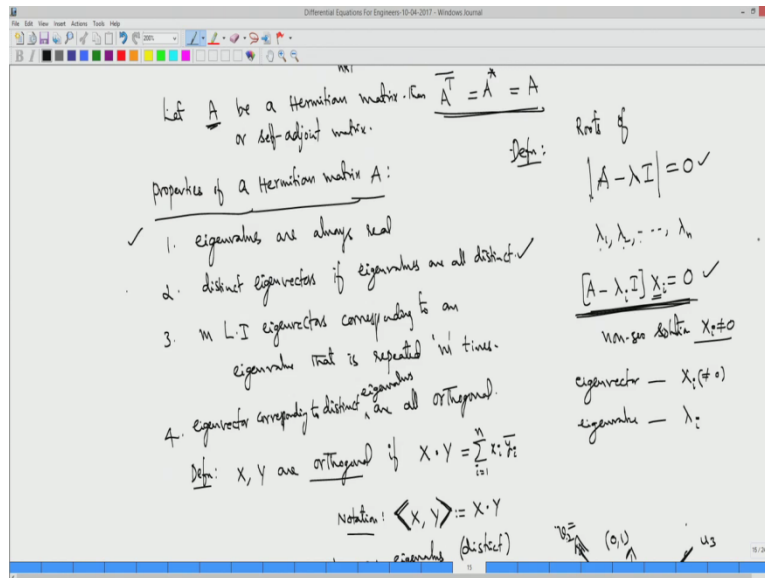 Differential Equations For Engineers-10-04-2017 - Windows Journal
File Edit View Insert Actions Tools Help
200%
B I
n×1
Let A be a Hermitian matrix. Then A̅ᵀ = A* = A
or self-adjoint matrix.
Properties of a Hermitian matrix A:
1. eigenvalues are always real
2. distinct eigenvectors if eigenvalues are all distinct.
3. m L.I eigenvectors corresponding to an
eigenvalue that is repeated 'm' times.
4. eigenvector corresponding to distinct eigenvalues are all orthogonal.
Defn: X, Y are orthogonal if X · Y = ∑ᵢ₌₁ⁿ xᵢ y̅ᵢ
Notation: <X, Y> := X · Y
eigenvalues (distinct)
Defn:
Roots of
|A - λI| = 0 ✓
λ₁, λ₂, ..., λₙ
[A - λᵢI] Xᵢ = 0 ✓
non-zero solution Xᵢ ≠ 0
eigenvector — Xᵢ (≠ 0)
eigenvalue — λᵢ
v₂ =
(0,1)
u₃
15